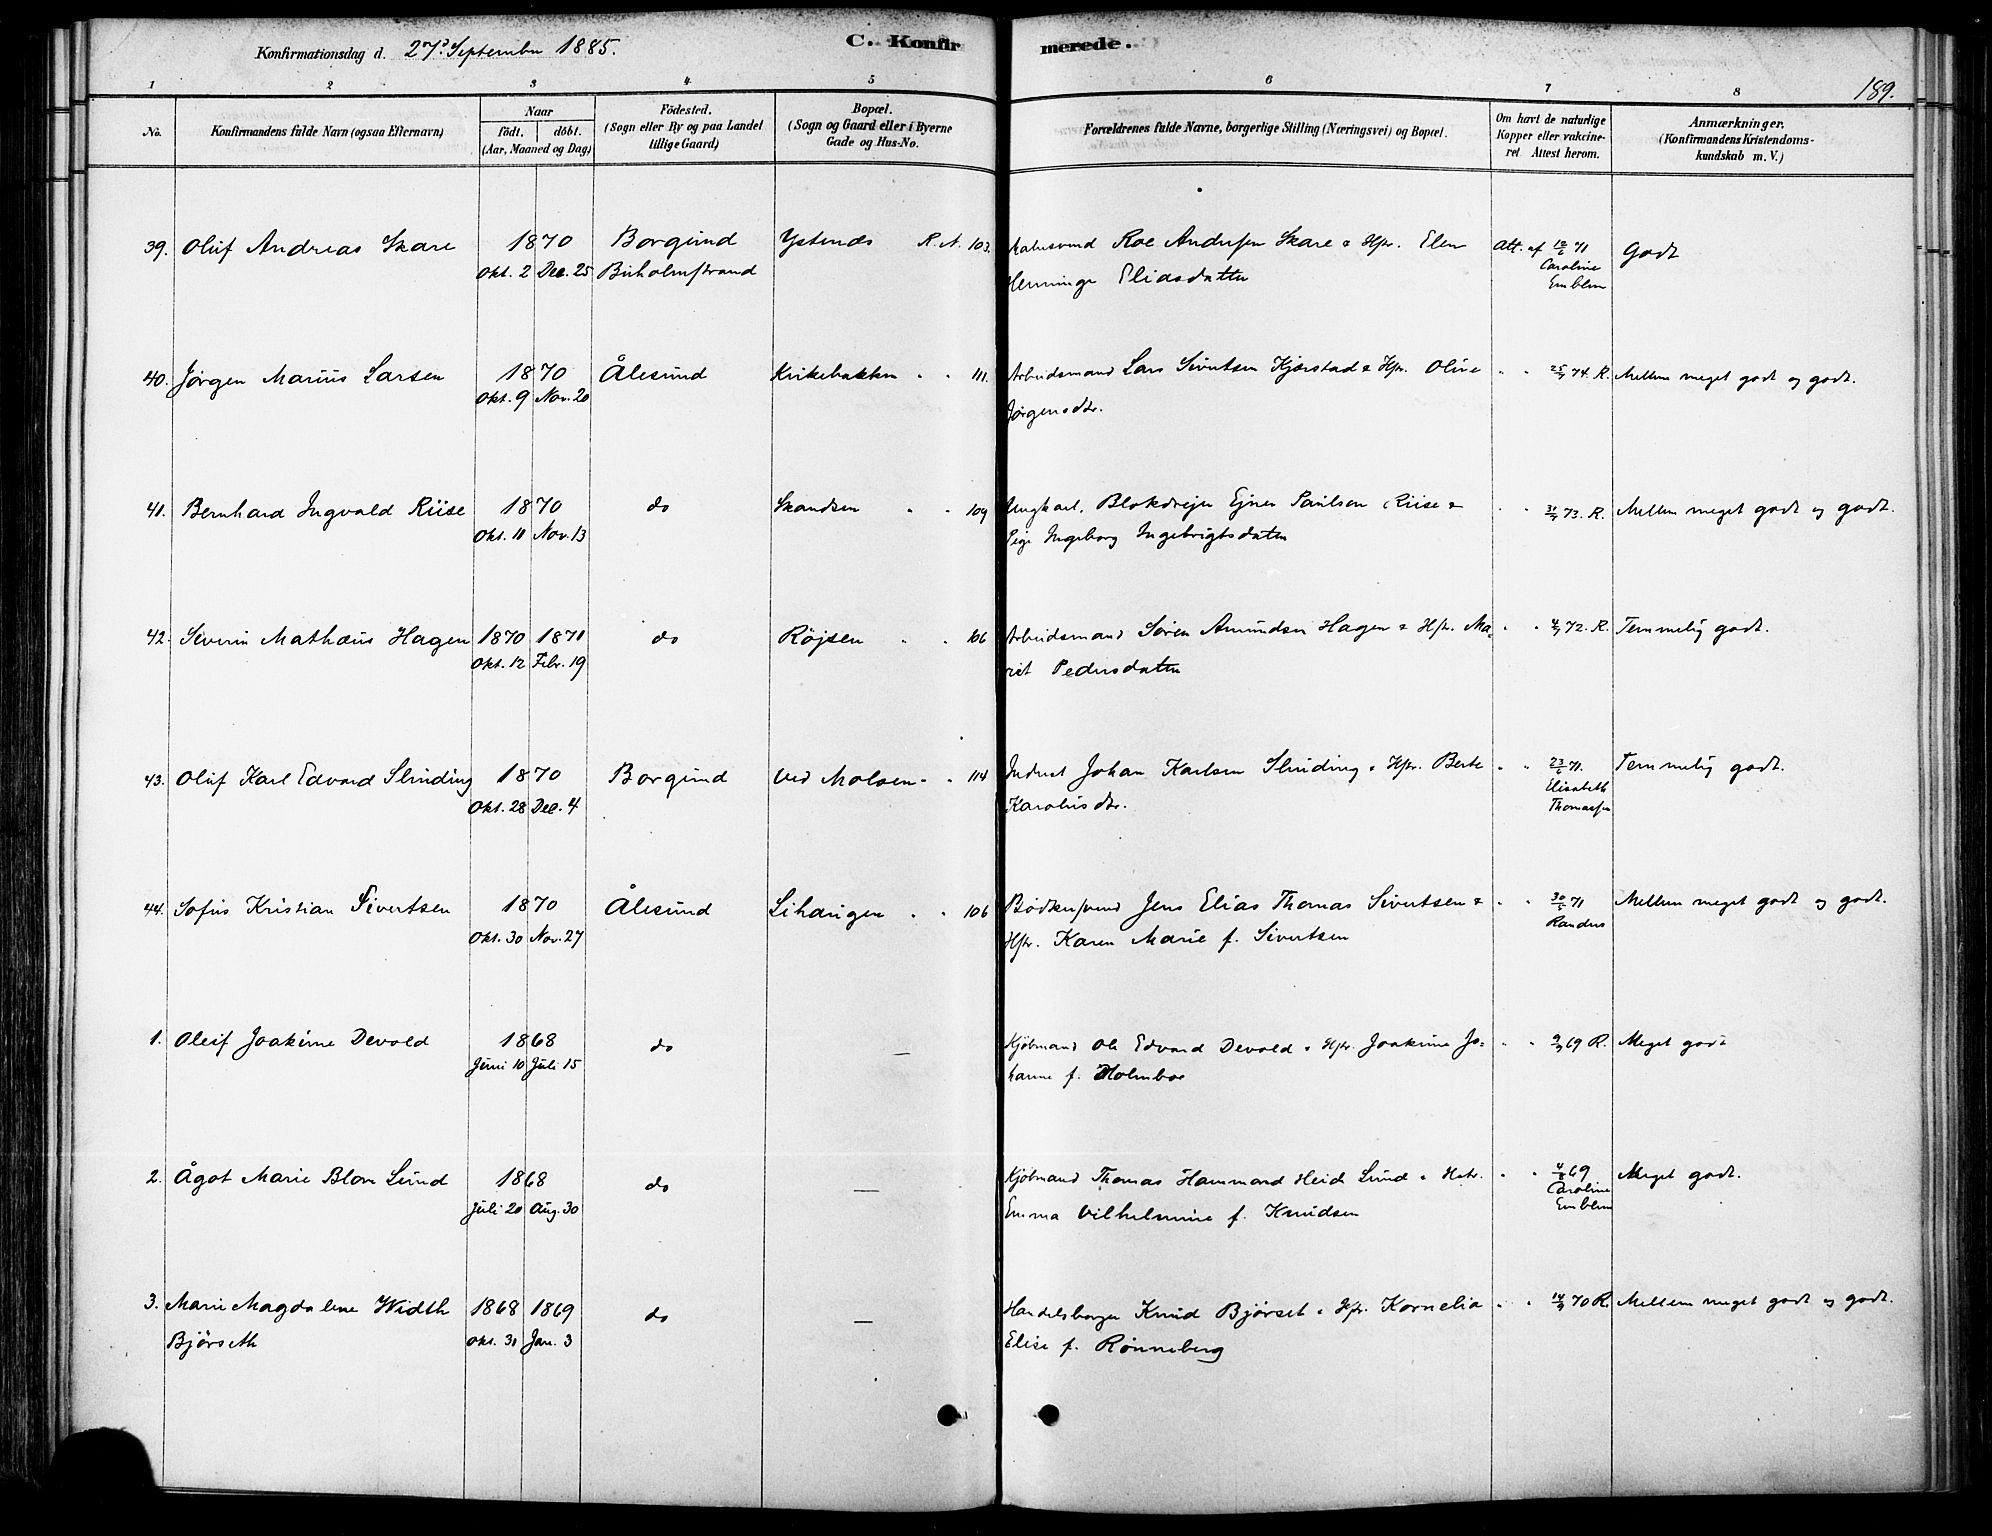 Konfirmationsdag d. 27d. September 1885.
C. Konfirmerede.
189.
1 2 3 4 5 6 7 8
No.
Konfirmandens fulde Navn (ogsaa Efternavn)
Naar
födt. döbt.
(Aar, Maaned og Dag)
Födested.
(Sogn eller By og paa Landet
tillige Gaard)
Bopæl.
(Sogn og Gaard eller i Byerne
Gade og Hus-No.
Forældrenes fulde Navne, borgerlige Stilling (Næringsvei) og Bopæl.
Om havt de naturlige
Kopper eller vakcine-
ret. Attest herom.
Anmærkninger.
(Konfirmandens Kristendoms-
kundskab m. V.)
39. Oluf Andreas Skare 1870 Borgund R. N. 103. Roe Andersen Skare & Hstr. Elen Att. af 71 Godt
Okt. 2 Dec. 25 Henninge Eliasdatter Caroline
Emblem
40. Jørgen Marius Larsen 1870 Ålesund Kirkebakken " " 111. Arbeidsmand Lars Sivertsen Kjærstad & Hstr. Oline " " 74. R. Mellem meget godt og godt.
Okt. 9 Nov. 20 Jørgensdtr.
41. Bernhard Ingvald Riise 1870 do Skandsen " " 109 Ungkarl, Blokdreier Ejner Paulsen Riise & " " 73. R. Mellem meget godt og godt.
Okt. 11 Nov. 13 Pige Ingeborg Ingebrigtsdatter
42. Severin Mathæus Hagen 1870 1871 do Röjsen " " 106 Arbeidsmand Sören Amundsen Hagen & Hstr. Ma- " " 72. R. Temmelig godt.
Okt. 12 Febr. 19 rit Pedersdatter
43. Oluf Karl Edvard Slinding 1870 Borgund ved Moloen " " 114 Inderst Johan Karlsen Slinding & Hstr. Berte " " 23/6 71. Temmelig godt.
Okt. 28 Dec. 4 Karolusdtr. Elisabeth
Thomassen
44. Sofus Kristian Sivertsen 1870 Ålesund Lihaugen " " 106 Bödkersvend Jens Elias Thomas Sivertsen & " " 71 Mellem meget godt og godt.
Okt. 30 Nov. 27 Hstr. Karen Marie f. Sivertsen Randers
1. Joakime Devold 1868 do — Kjöbmand Ole Edvard Devold & Hstr. Joakime Jo- " " 69 R. Meget godt
Juni 10 Juli 15 hanne f. Holmboe
2. Ågot Marie Blom Lund 1868 do — Kjöbmand Thomas Hammond Heide Lund & Hstr. " " 69 Meget godt.
Juli 20 Aug. 30 Emma Vilhelmine f. Knudsen Caroline
Emblem
3. Marie Magdalene Width 1868 1869 do — Handelsborger Knud Björset & Hstr. Kornelia " " 70 R. Mellem meget godt og godt.
Björseth Okt. 31 Jan. 3 Elise f. Rönneberg